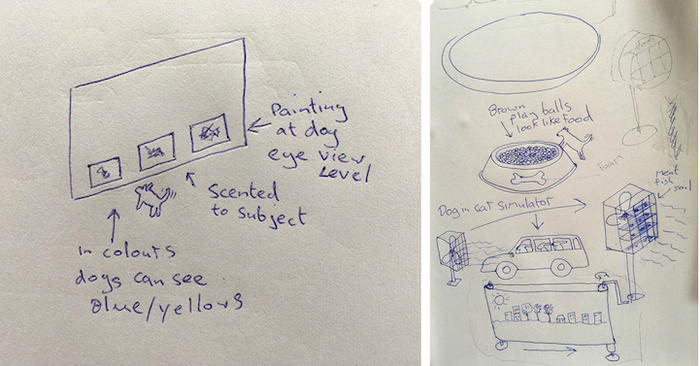 Painting
at dog
eye view
Level
Scented
to subject
In colours
dogs can see
Blue/yellows
Brown
play balls
look like food
Dog in car simulator
Meat
fish
soil